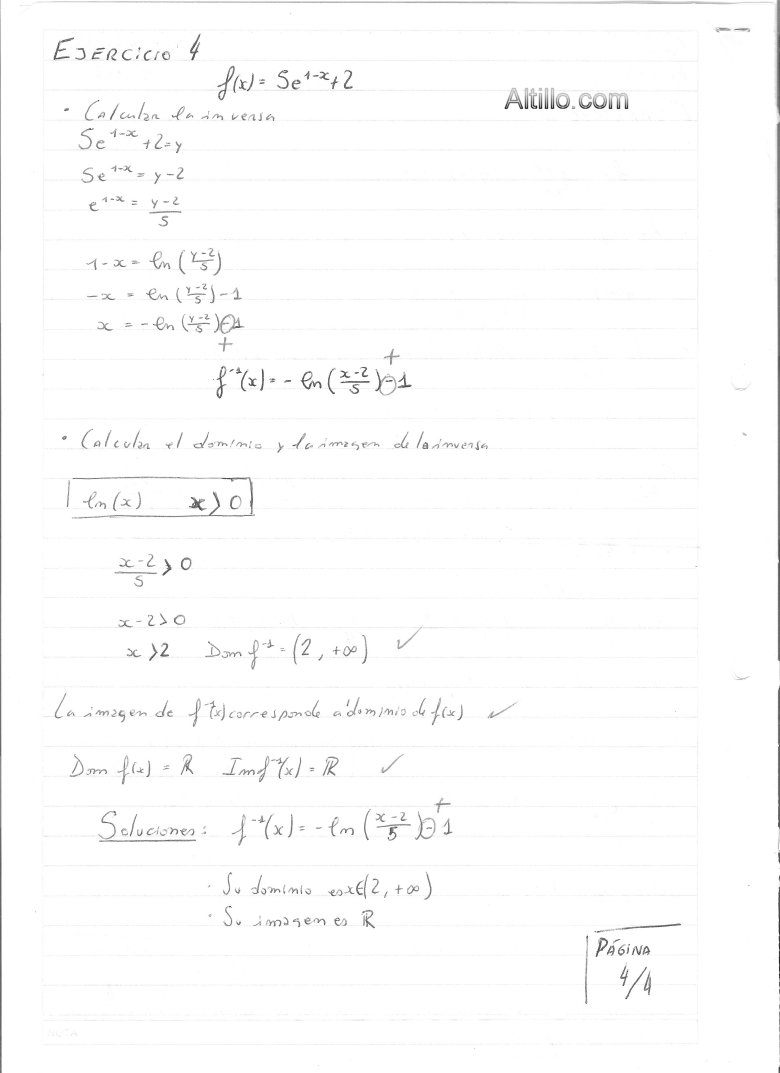 EJERCICIO 4
f(x) = 5e^{1-x}+2
Altillo.com
• Calcular la inversa
5e^{1-x} + 2 = y
5e^{1-x} = y - 2
e^{1-x} = \frac{y-2}{5}
1-x = ln(\frac{y-2}{5})
-x = ln(\frac{y-2}{5}) - 1
x = -ln(\frac{y-2}{5}) ⊖ 1
+
+
f^{-1}(x) = - ln(\frac{x-2}{5}) ⊖ 1
• Calcular el dominio y la imagen de la inversa
ln(x) x > 0
\frac{x-2}{5} > 0
x - 2 > 0
x > 2 Dom f^{-1} = (2, +∞) ✓
La imagen de f^{-1}(x) corresponde al dominio de f(x) ✓
Dom f(x) = ℝ Im f^{-1}(x) = ℝ ✓
+
Soluciones: f^{-1}(x) = - ln(\frac{x-2}{5}) ⊖ 1
• Su dominio es x∈(2, +∞)
• Su imagen es ℝ
PÁGINA
4/4